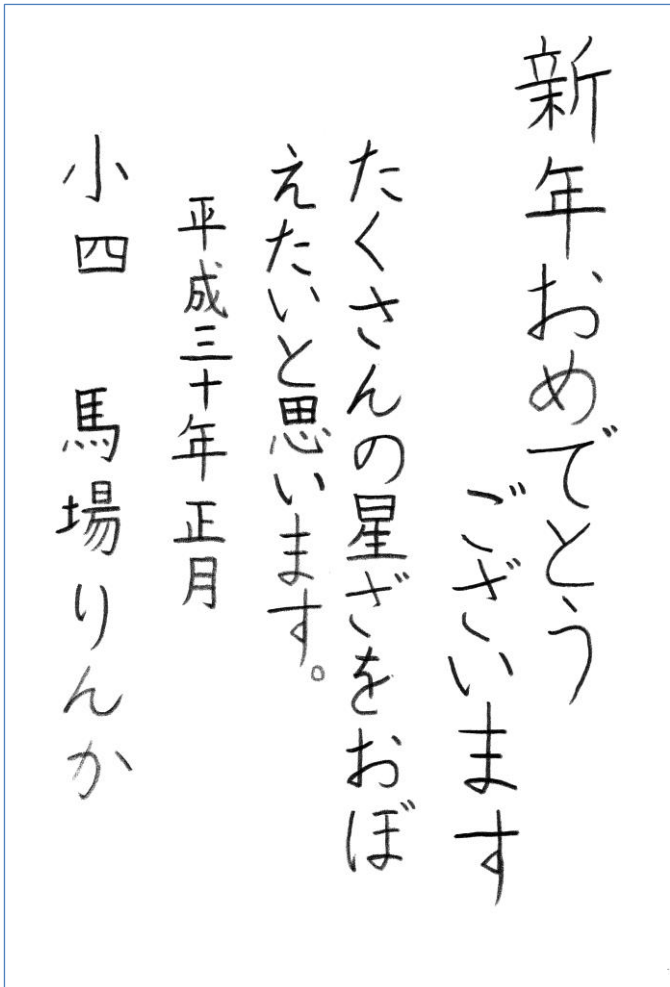 新年おめでとう
ございます
たくさんの星ざをおぼ
えたいと思います。
平成三十年 正月
小四 馬場りんか